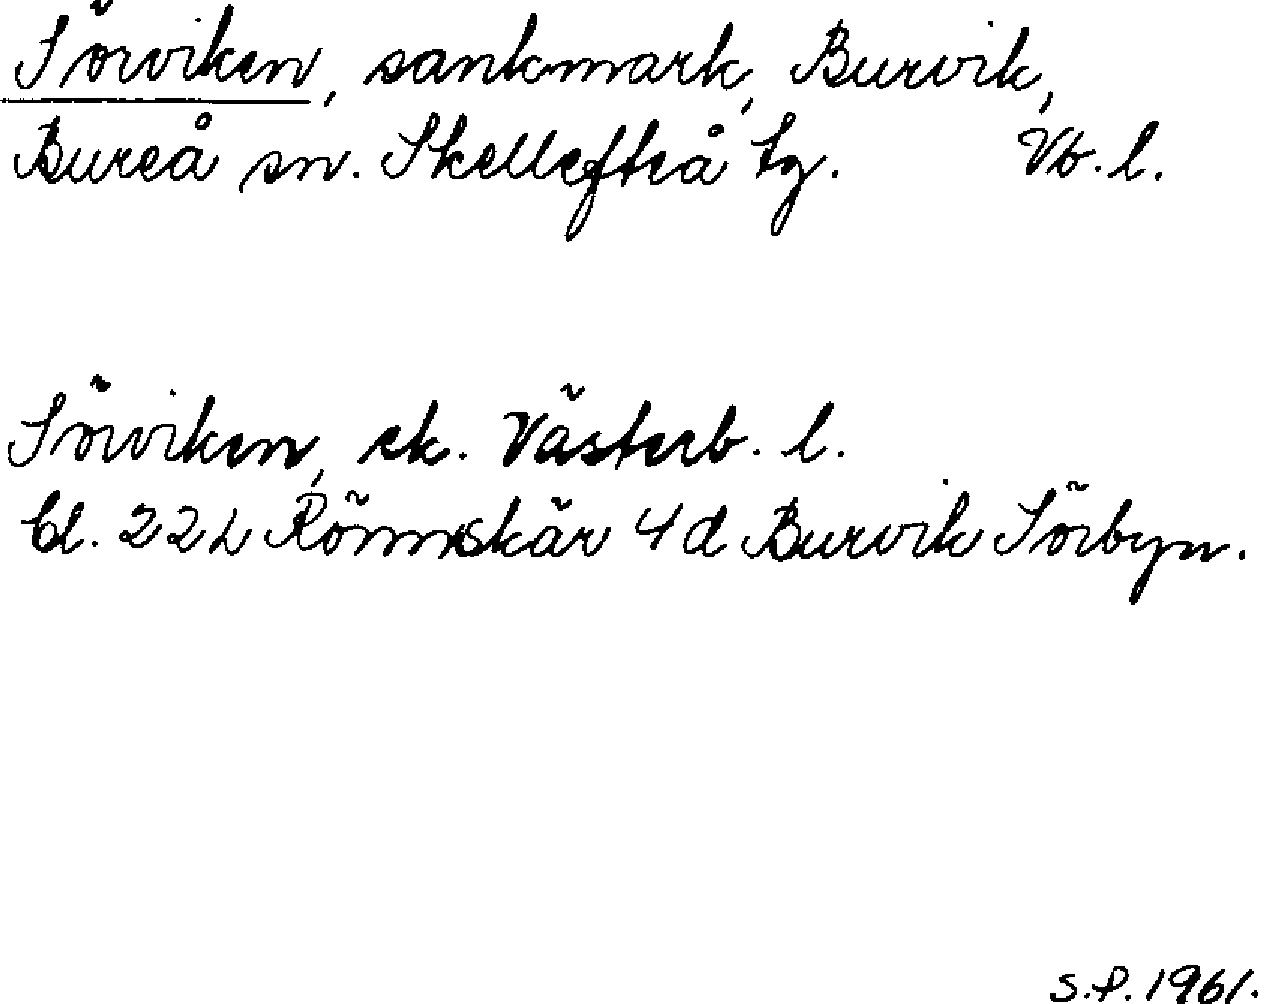 Sörviken, sankmark, Burvik,
Bureå sn. Skellefteå tg. Vb. l.
Sörviken, ek. Västerb. l.
bl. 22L Rönnskär 4d Burvik Sörbyn.
S.P. 1961.